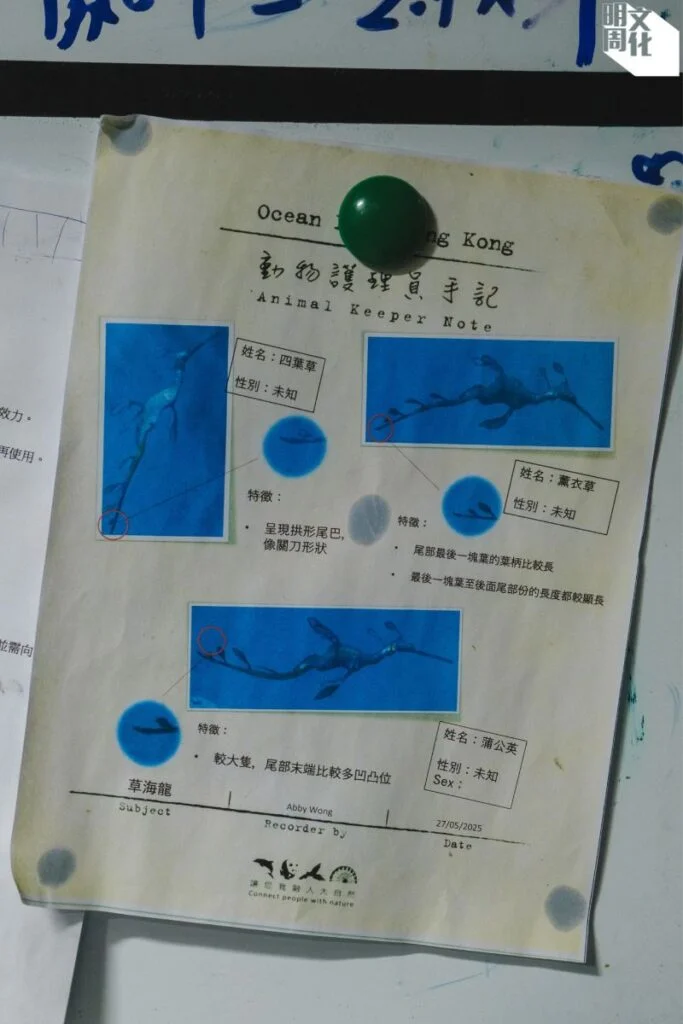 明周
文化
Ocean ng Kong
動物護理員手記
Animal Keeper Note
姓名：四葉草
性別：未知
特徵：
• 呈現拱形尾巴，
像關刀形狀
姓名：薰衣草
性別：未知
特徵：
• 尾部最後一塊葉的葉柄比較長
• 最後一塊葉至後面尾部份的長度都較顯長
特徵：
• 較大隻，尾部末端比較多凹凸位
姓名：蒲公英
性別：未知
Sex：
草海龍
Subject
Abby Wong
Recorder by
27/05/2025
Date
讓您我融入大自然
Connect people with nature
效力。
再使用。
並需向